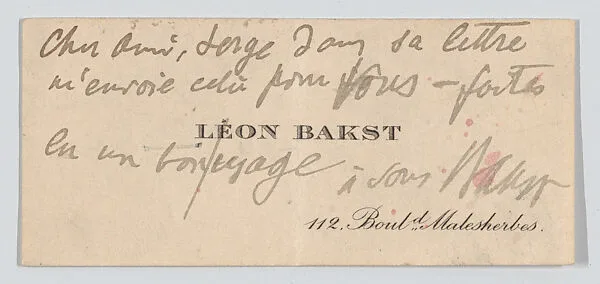 Cher ami, Serge dans sa lettre
m'envoie cela pour vous – faites
LÉON BAKST
en un bon usage
à vous Bakst
112, Boul.d Malesherbes.